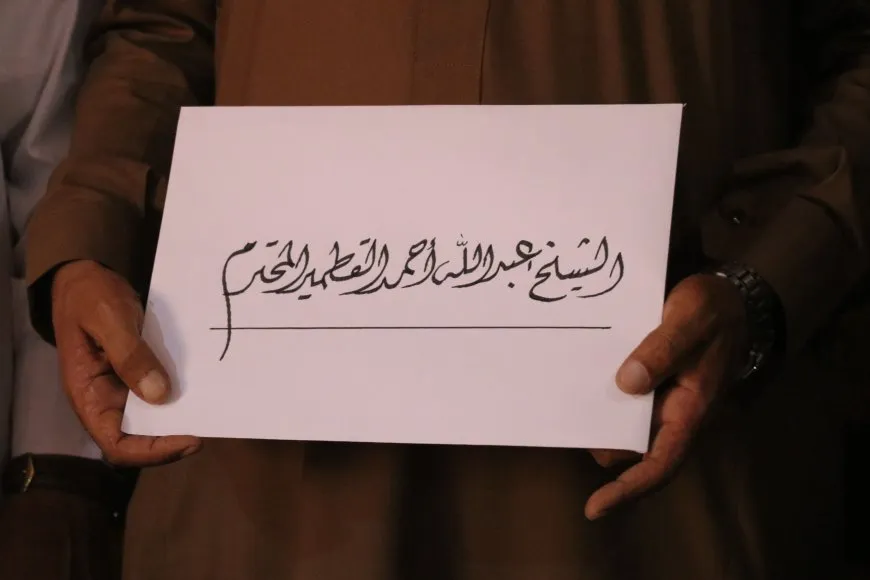 الشيخ عبدالله أحمد القطمير المحترم